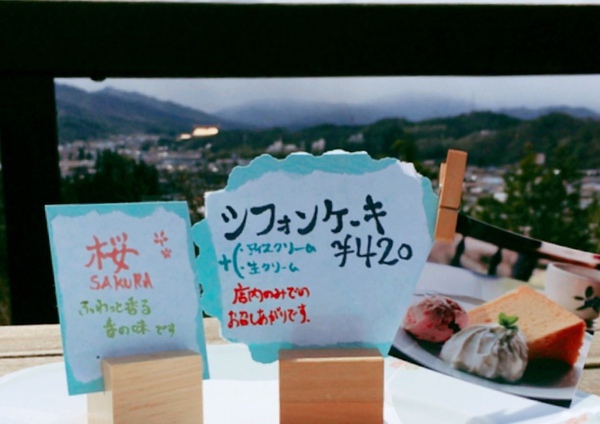 桜
SAKURA
ふわっと香る
春の味です
シフォンケーキ
+(・アイスクリーム
・生クリーム
¥420
店内のみでの
お召しあがりです。